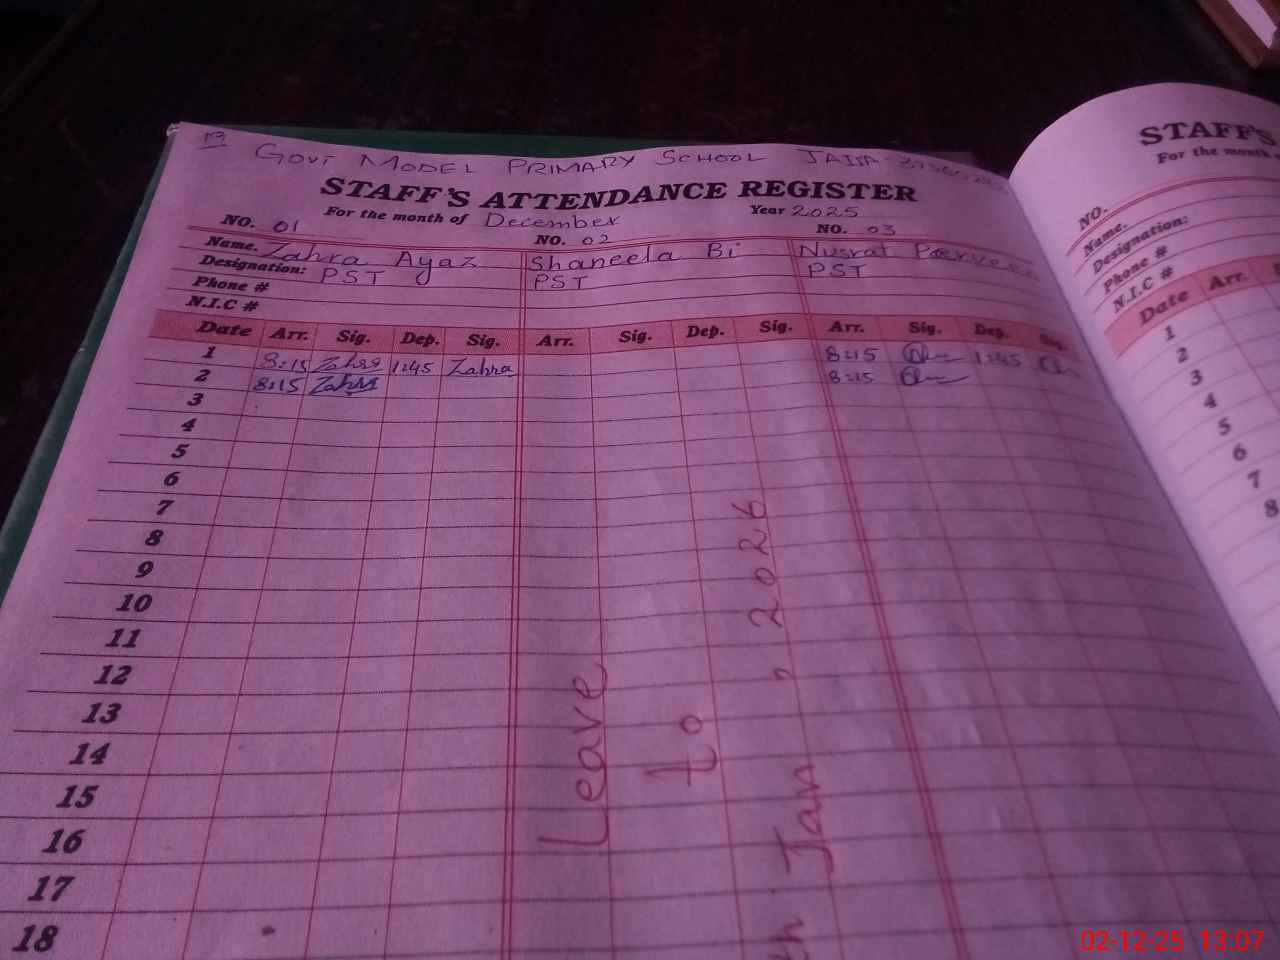 GOVT MODEL PRIMARY SCHOOL
STAFF'S ATTENDANCE REGISTER
For the month of December Year 2025
NO. 01 NO. 02 NO. 03
Name. Zahra Ayaz Shaneela Bi Nusrat Parveen
Designation: PST PST PST
Phone #
N.I.C #
Date Arr. Sig. Dep. Sig. Arr. Sig. Dep. Sig. Arr. Sig. Dep. Sig.
1 8:15 Zahra 1:45 Zahra 8:15 1:45
2 8:15 Zahra 8:15
3
4
5
6
7
8
9
10
11
12
13
14
15
16
17
18
Leave
to
Jan, 2026
STAFF'S
For the month
NO.
Name.
Designation:
Phone #
N.I.C #
Date Arr.
1
2
3
4
5
6
7
8
02-12-25 13:07